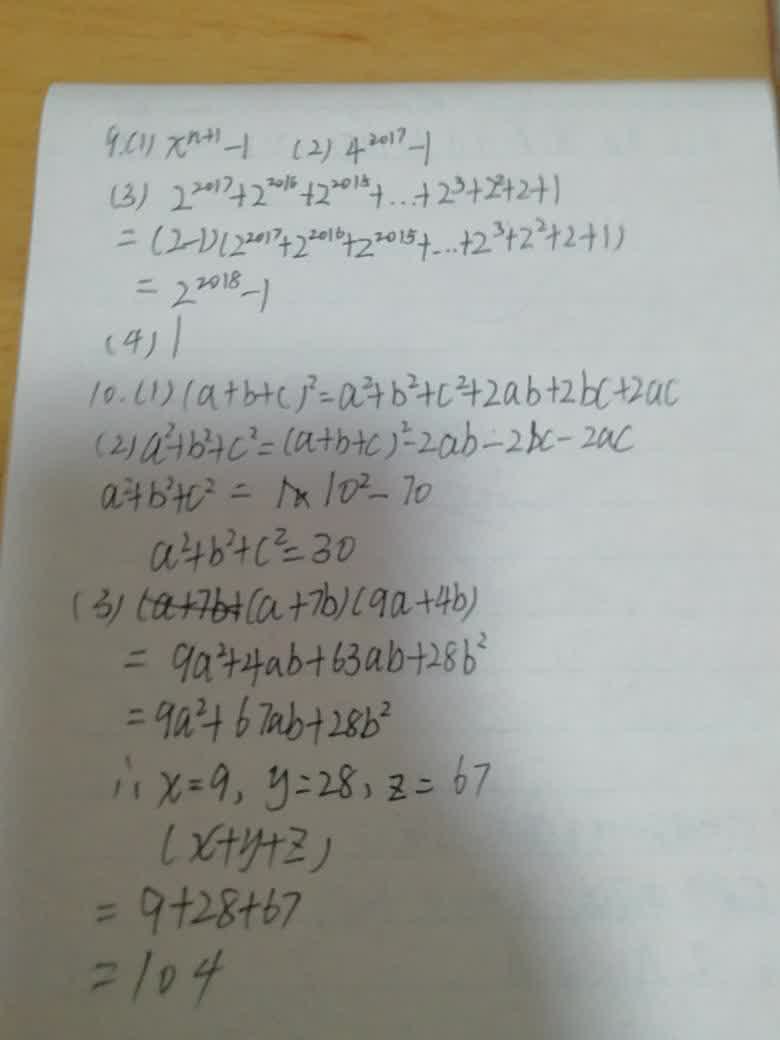 9.(1) xⁿ⁺¹-1 (2) 4²⁰¹⁷-1
(3) 2²⁰¹⁷+2²⁰¹⁶+2²⁰¹⁵+...+2³+2²+2+1
=(2-1)(2²⁰¹⁷+2²⁰¹⁶+2²⁰¹⁵+...+2³+2²+2+1)
=2²⁰¹⁸-1
(4) 1
10.(1)(a+b+c)²=a²+b²+c²+2ab+2bc+2ac
(2)a²+b²+c²=(a+b+c)²-2ab-2bc-2ac
a²+b²+c²=10²-70
a²+b²+c²=30
(3)(a+7b)(9a+4b)
=9a²+4ab+63ab+28b²
=9a²+67ab+28b²
∴x=9,y=28,z=67
(x+y+z)
=9+28+67
=104